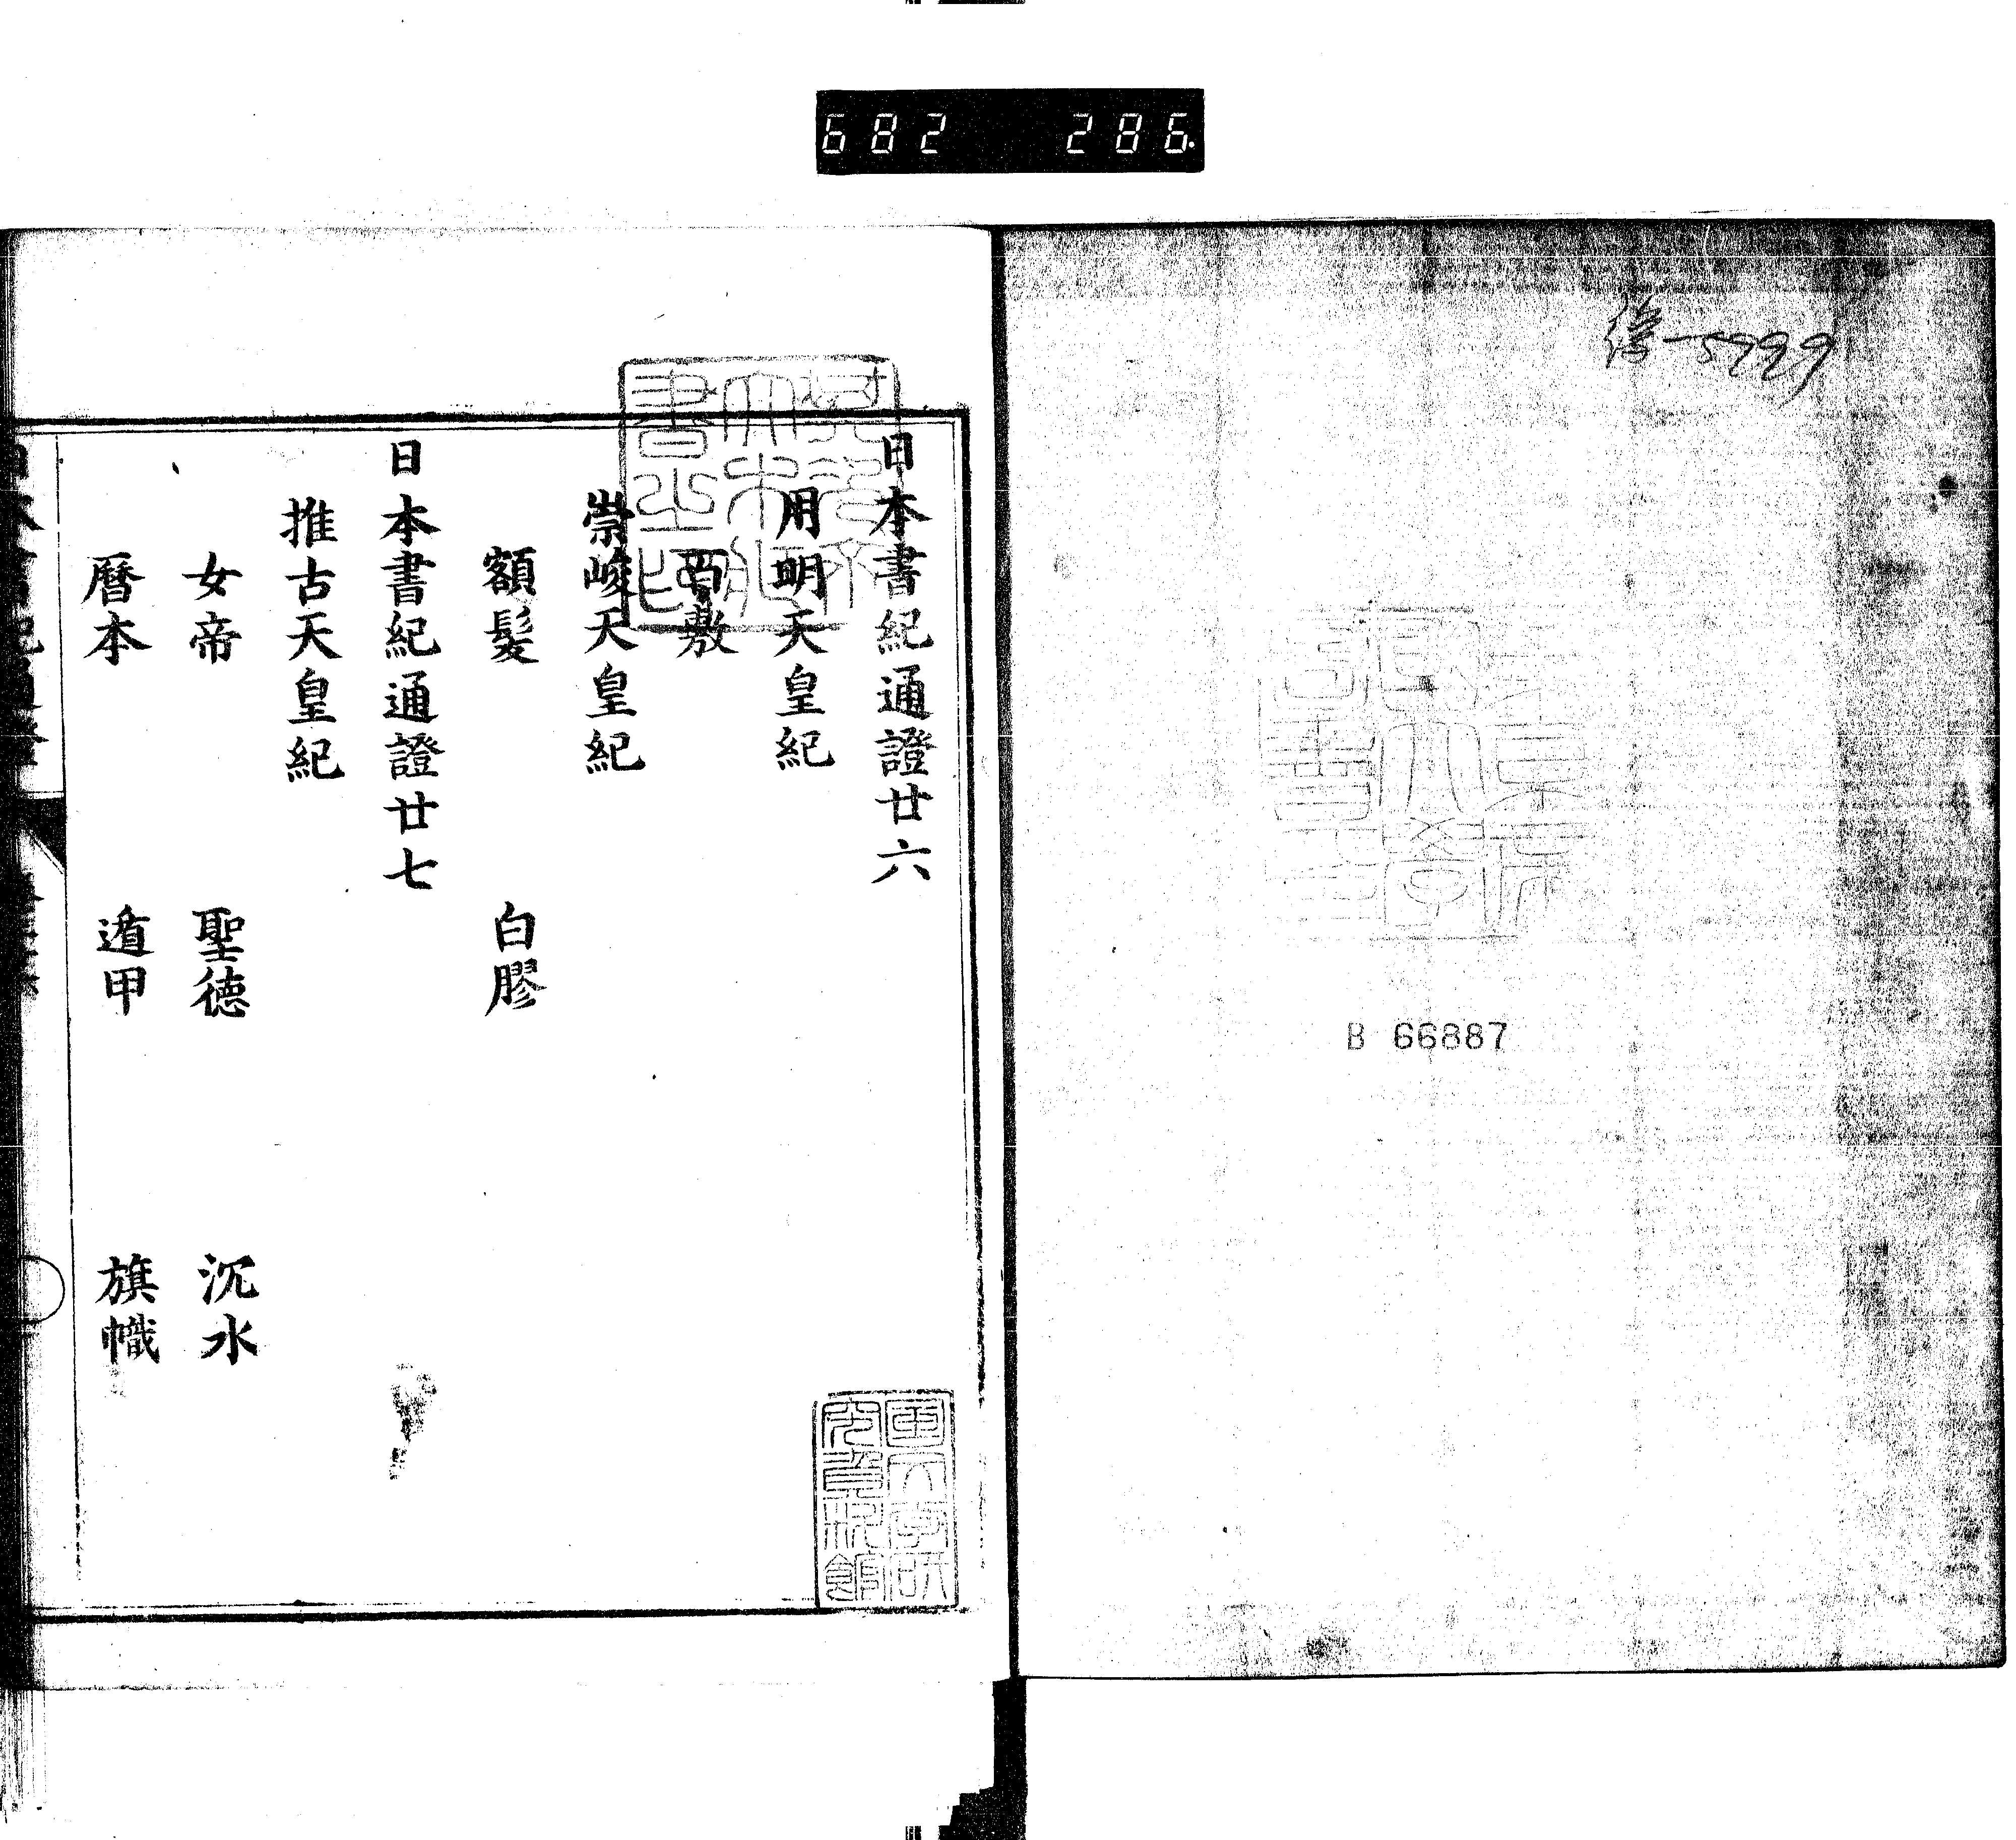 682 286.
5999
B 66887
日本書紀通證廿六
用明天皇紀
百敷
崇峻天皇紀
額髮 白膠
日本書紀通證廿七
推古天皇紀
女帝 聖德 沉水
曆本 遁甲 旗幟